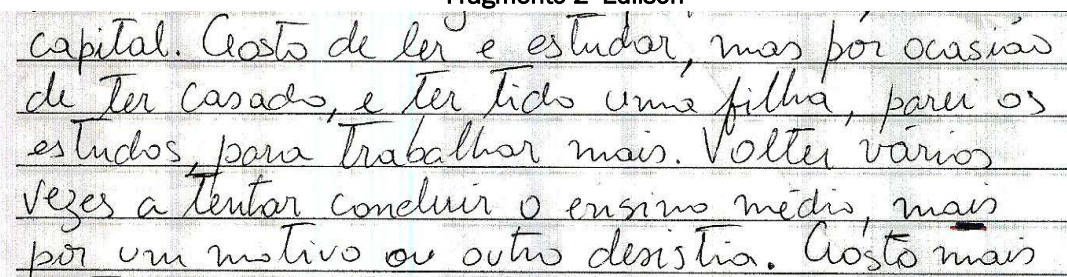 Fragmento 2 Edilson
capital. Gosto de ler e estudar, mas por ocasião
de ter casado, e ter tido uma filha, parei os
estudos, para trabalhar mais. Voltei vários
vezes a tentar concluir o ensino médio, mais
por um motivo ou outro desistia. Gosto mais